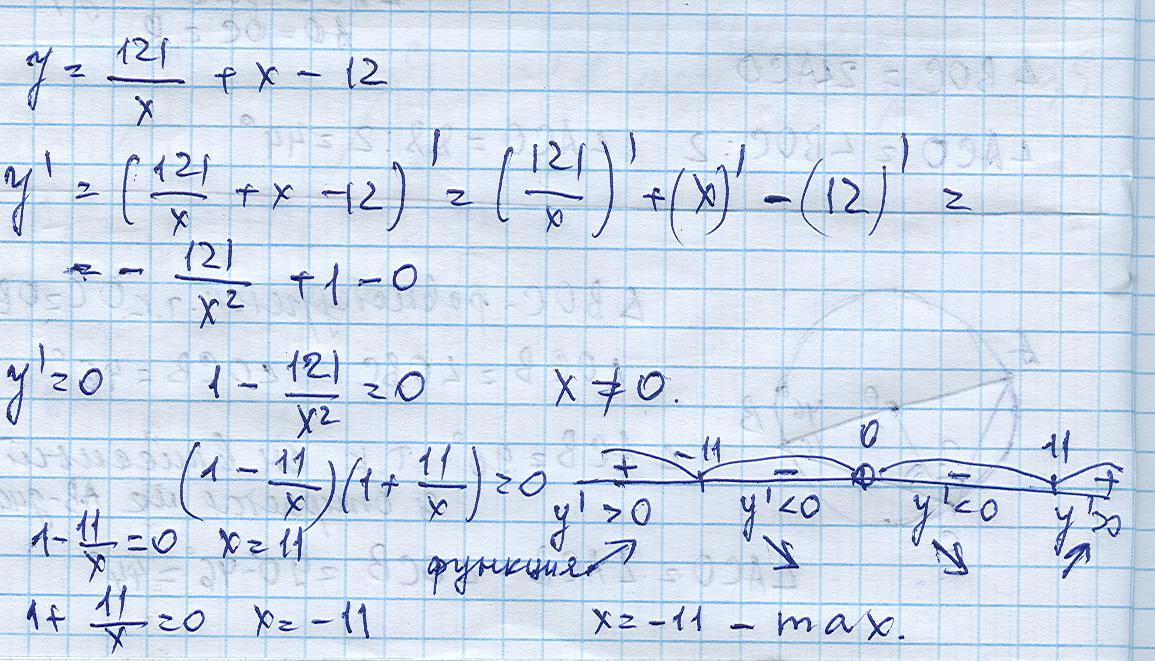 y = 121/x + x - 12
y' = (121/x + x - 12)' = (121/x)' + (x)' - (12)' =
= - 121/x² + 1 - 0
y' = 0 1 - 121/x² = 0 x ≠ 0.
(1 - 11/x)(1 + 11/x) = 0
-11 0 11
+ - - +
y' > 0 y' < 0 y' < 0 y' > 0
1 - 11/x = 0 x = 11
функция ↗ ↘ ↘ ↗
1 + 11/x = 0 x = -11 x = -11 - max.